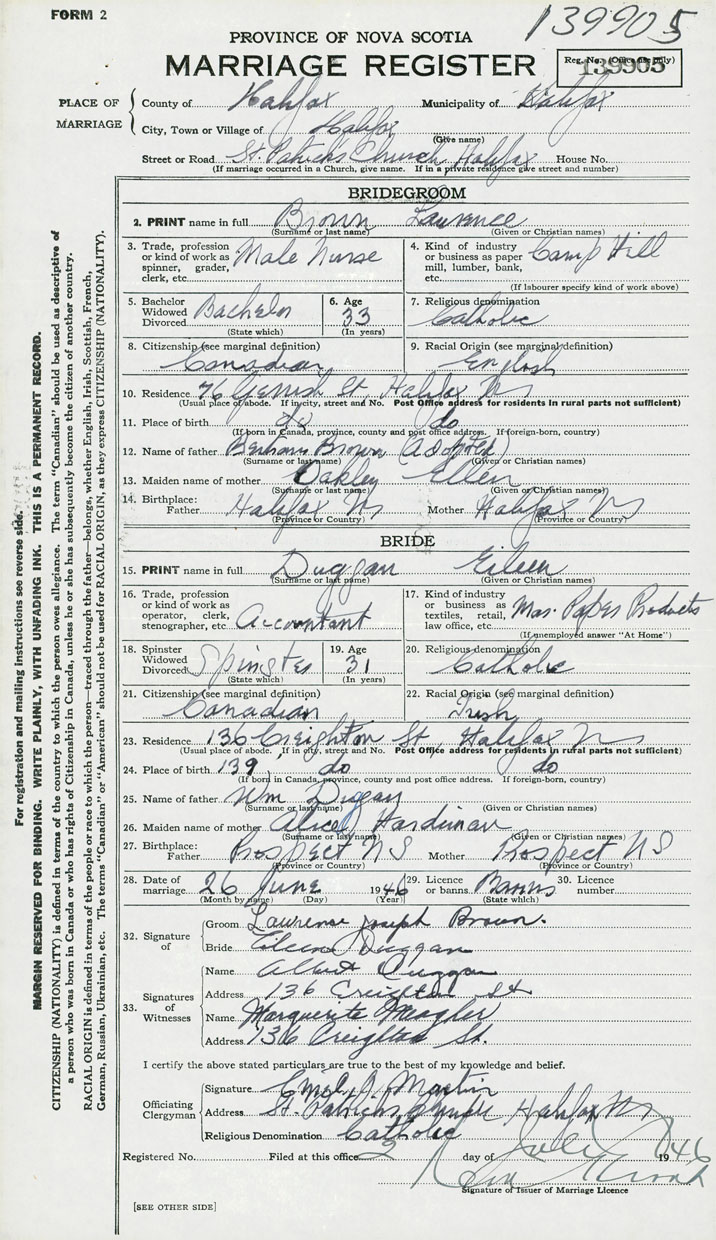 FORM 2
139905
PROVINCE OF NOVA SCOTIA
MARRIAGE REGISTER
Reg. No. (Office use only)
139905
PLACE OF MARRIAGE
County of Halifax Municipality of Halifax
City, Town or Village of Halifax
(Give name)
Street or Road St. Patrick's Church, Halifax House No.
(If marriage occurred in a Church, give name. If in a private residence give street and number)
BRIDEGROOM
2. PRINT name in full Brown Laurence
(Surname or last name) (Given or Christian names)
3. Trade, profession or kind of work as spinner, grader, clerk, etc. Male Nurse
4. Kind of industry or business as paper mill, lumber, bank, etc. Camp Hill
(If labourer specify kind of work above)
5. Bachelor Widowed Divorced Bachelor
(State which)
6. Age 33
(In years)
7. Religious denomination Catholic
8. Citizenship (see marginal definition) Canadian
9. Racial Origin (see marginal definition) English
10. Residence 76 St, Halifax NS
(Usual place of abode. If in city, street and No. Post Office address for residents in rural parts not sufficient)
11. Place of birth do do
(If born in Canada, province, county and post office address. If foreign-born, country)
12. Name of father Brown (Adopted)
(Surname or last name) (Given or Christian names)
13. Maiden name of mother Oakley Ellen
(Surname or last name) (Given or Christian names)
14. Birthplace: Father Halifax NS Mother Halifax NS
(Province or Country) (Province or Country)
BRIDE
15. PRINT name in full Duggan Eileen
(Surname or last name) (Given or Christian names)
16. Trade, profession or kind of work as operator, clerk, stenographer, etc. Accountant
17. Kind of industry or business as textiles, retail, law office, etc. Mar. Paper Products
(If unemployed answer "At Home")
18. Spinster Widowed Divorced Spinster
(State which)
19. Age 31
(In years)
20. Religious denomination Catholic
21. Citizenship (see marginal definition) Canadian
22. Racial Origin (see marginal definition) Irish
23. Residence 136 Creighton St, Halifax NS
(Usual place of abode. If in city, street and No. Post Office address for residents in rural parts not sufficient)
24. Place of birth 139, do do
(If born in Canada, province, county and post office address. If foreign-born, country)
25. Name of father Wm Duggan
(Surname or last name) (Given or Christian names)
26. Maiden name of mother Alice Hardiman
(Surname or last name) (Given or Christian names)
27. Birthplace: Father Prospect NS Mother Prospect NS
(Province or Country) (Province or Country)
28. Date of marriage 26 June 1946 29. Licence or banns Banns 30. Licence number
(Month by name) (Day) (Year) (State which)
32. Signature of
Groom Laurence Joseph Brown.
Bride Eileen Duggan
33. Signatures of Witnesses
Name Albert Duggan
Address 136 Creighton St
Name Marguerite Meagher
Address 136 Creighton St.
I certify the above stated particulars are true to the best of my knowledge and belief.
Officiating Clergyman
Signature Martin
Address St. Patrick's Church Halifax NS
Religious Denomination Catholic
Registered No. Filed at this office 2 day of July 1946
Signature of Issuer of Marriage Licence
[SEE OTHER SIDE]
For registration and mailing instructions see reverse side.
MARGIN RESERVED FOR BINDING. WRITE PLAINLY, WITH UNFADING INK. THIS IS A PERMANENT RECORD.
CITIZENSHIP (NATIONALITY) is defined in terms of the country to which the person owes allegiance. The term "Canadian" should be used as descriptive of
a person who was born in Canada or who has rights of Citizenship in Canada, unless he or she has subsequently become the citizen of another country.
RACIAL ORIGIN is defined in terms of the people or race to which the person—traced through the father—belongs, whether English, Irish, Scottish, French,
German, Russian, Ukrainian, etc. The terms "Canadian" or "American" should not be used for RACIAL ORIGIN, as they express CITIZENSHIP (NATIONALITY).